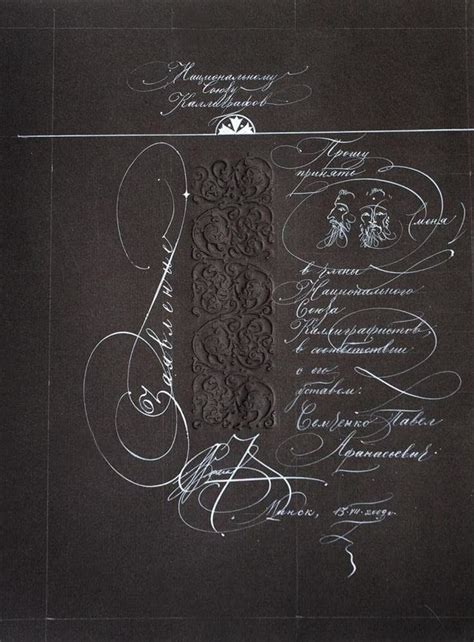 Национальному
Союзу
Каллиграфов
Заявление
Прошу
принять
меня
в члены
Национального
Союза
Каллиграфистов,
в соответствии
с его
уставом.
Семченко Павел
Афанасьевич.
Минск, 15-VII-2009г.